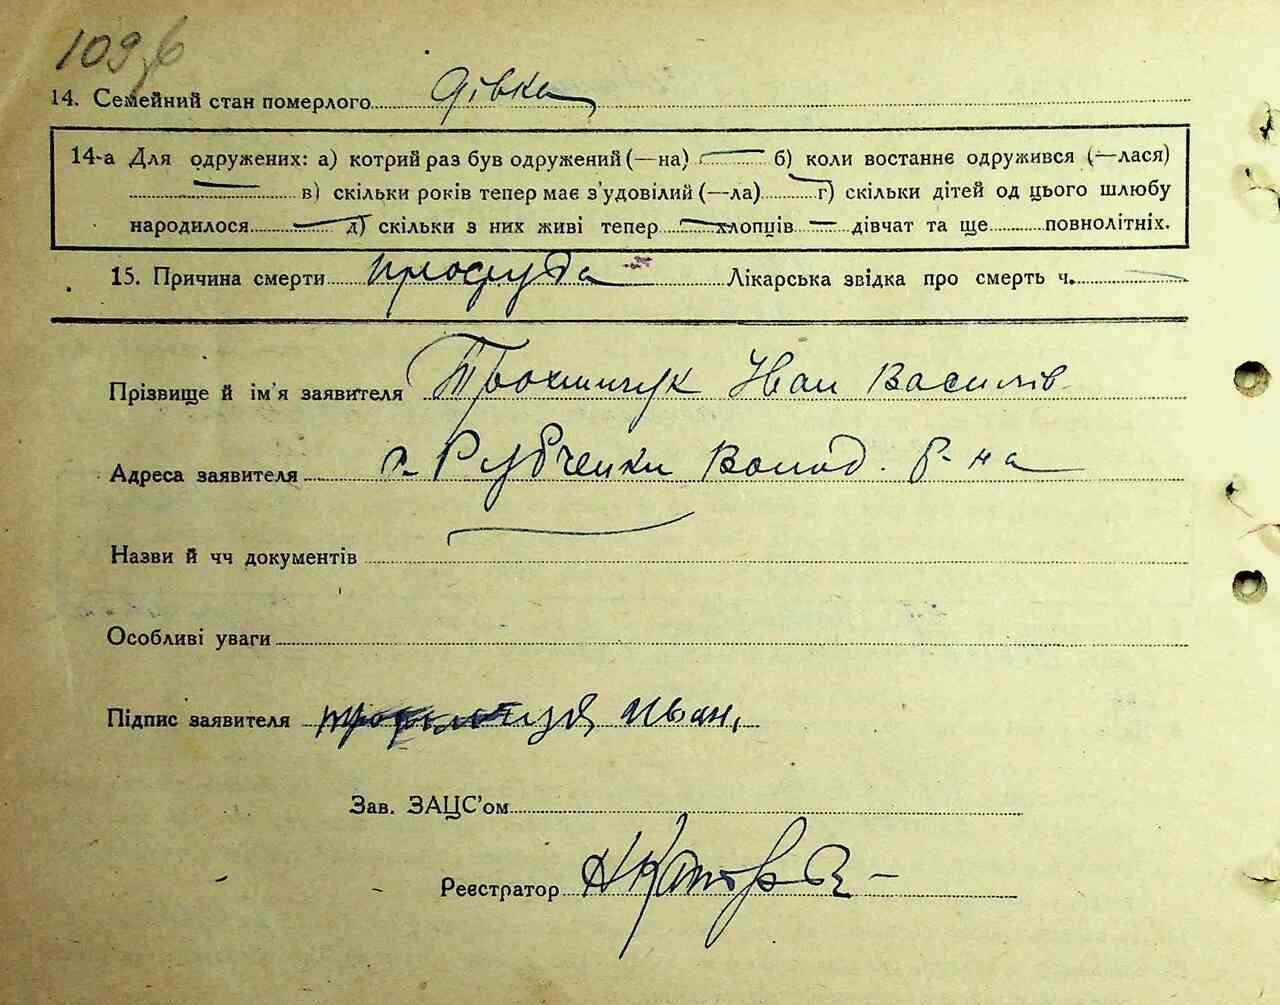 109
14. Семейний стан померлого дівка
14-а Для одружених: а) котрий раз був одружений (—на) б) коли востаннє одружився (—лася)
в) скільки років тепер має з’удовілий (—ла) г) скільки дітей од цього шлюбу
народилося д) скільки з них живі тепер хлопців — дівчат та ще повнолітніх.
15. Причина смерти простуда Лікарська звідка про смерть ч.
Прізвище й ім’я заявителя Трохимчук Іван Василів
Адреса заявителя с. Рубченки Волод. р-на
Назви й чч документів
Особливі уваги
Підпис заявителя Иван,
Зав. ЗАЦС’ом
Реєстратор